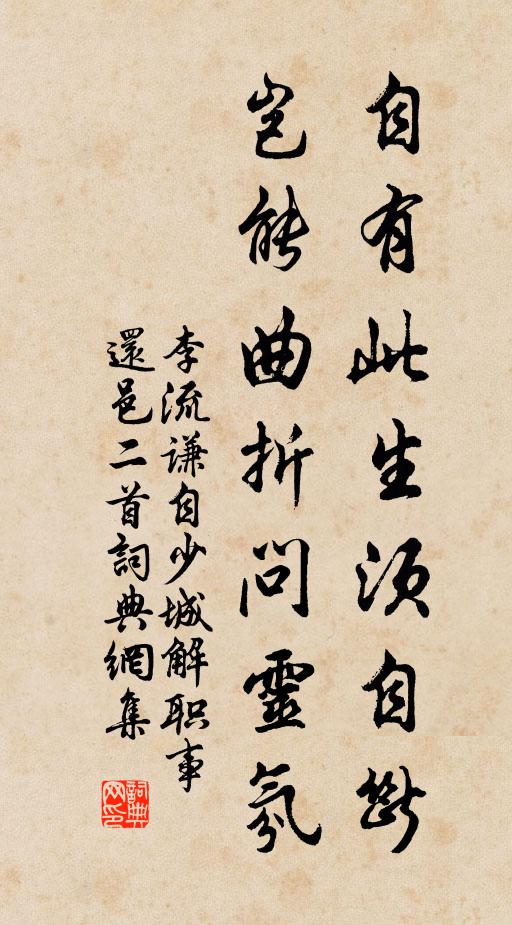 自有此生須自斷
豈能曲折問靈氛
李流谦自少城解职事
還邑二首詞典網集
詞典
网印